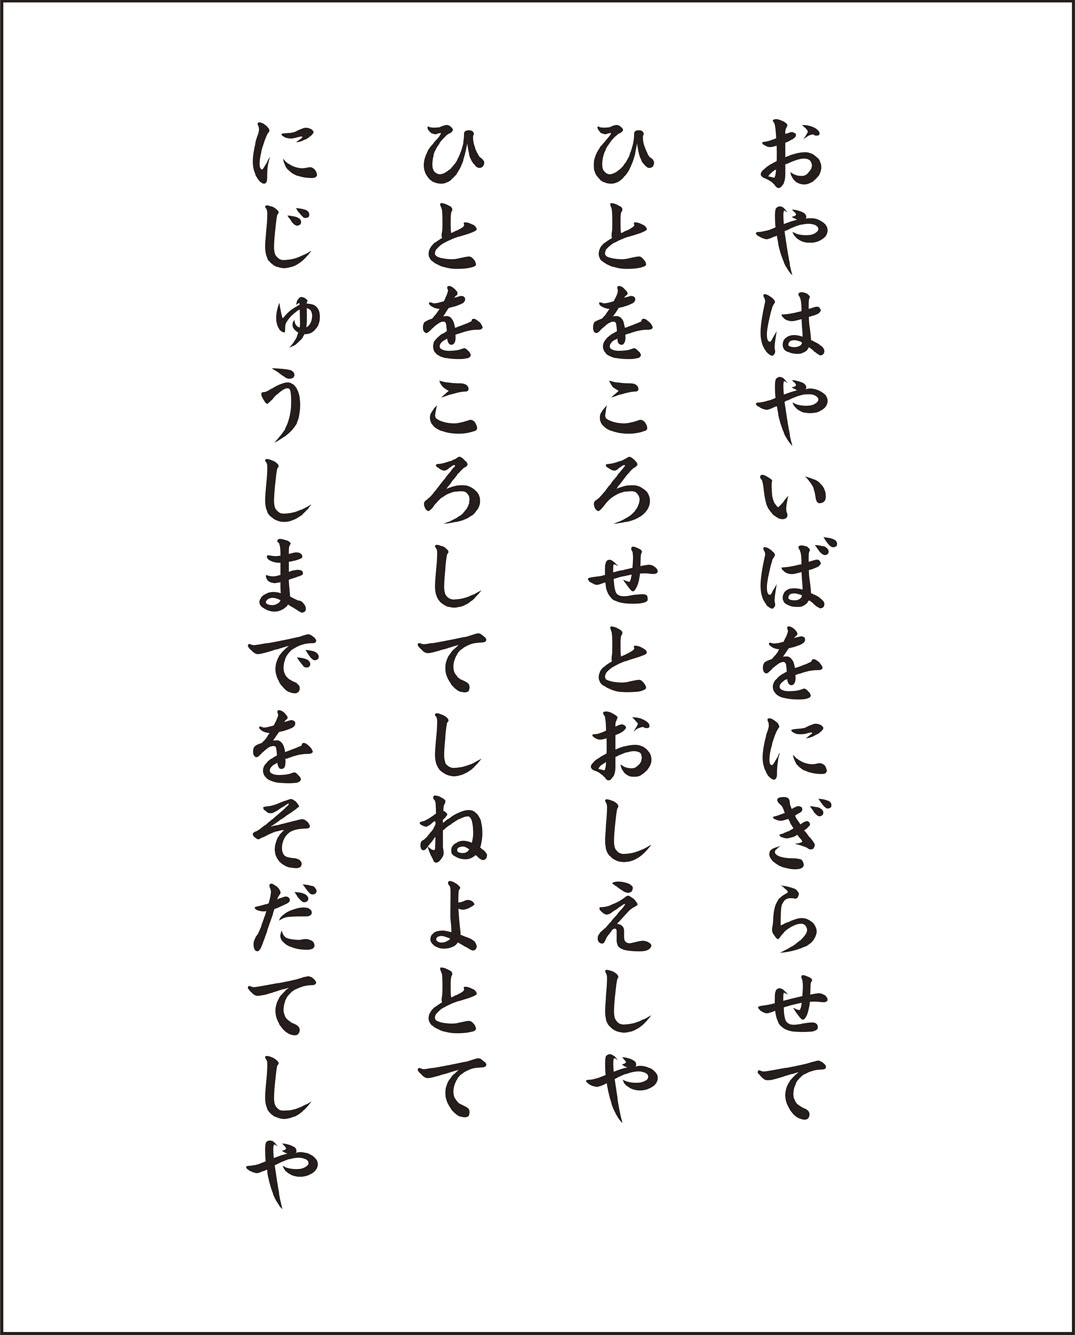 おやはやいばをにぎらせて
ひとをころせとおしえしや
ひとをころしてしねよとて
にじゅうしまでをそだてしや